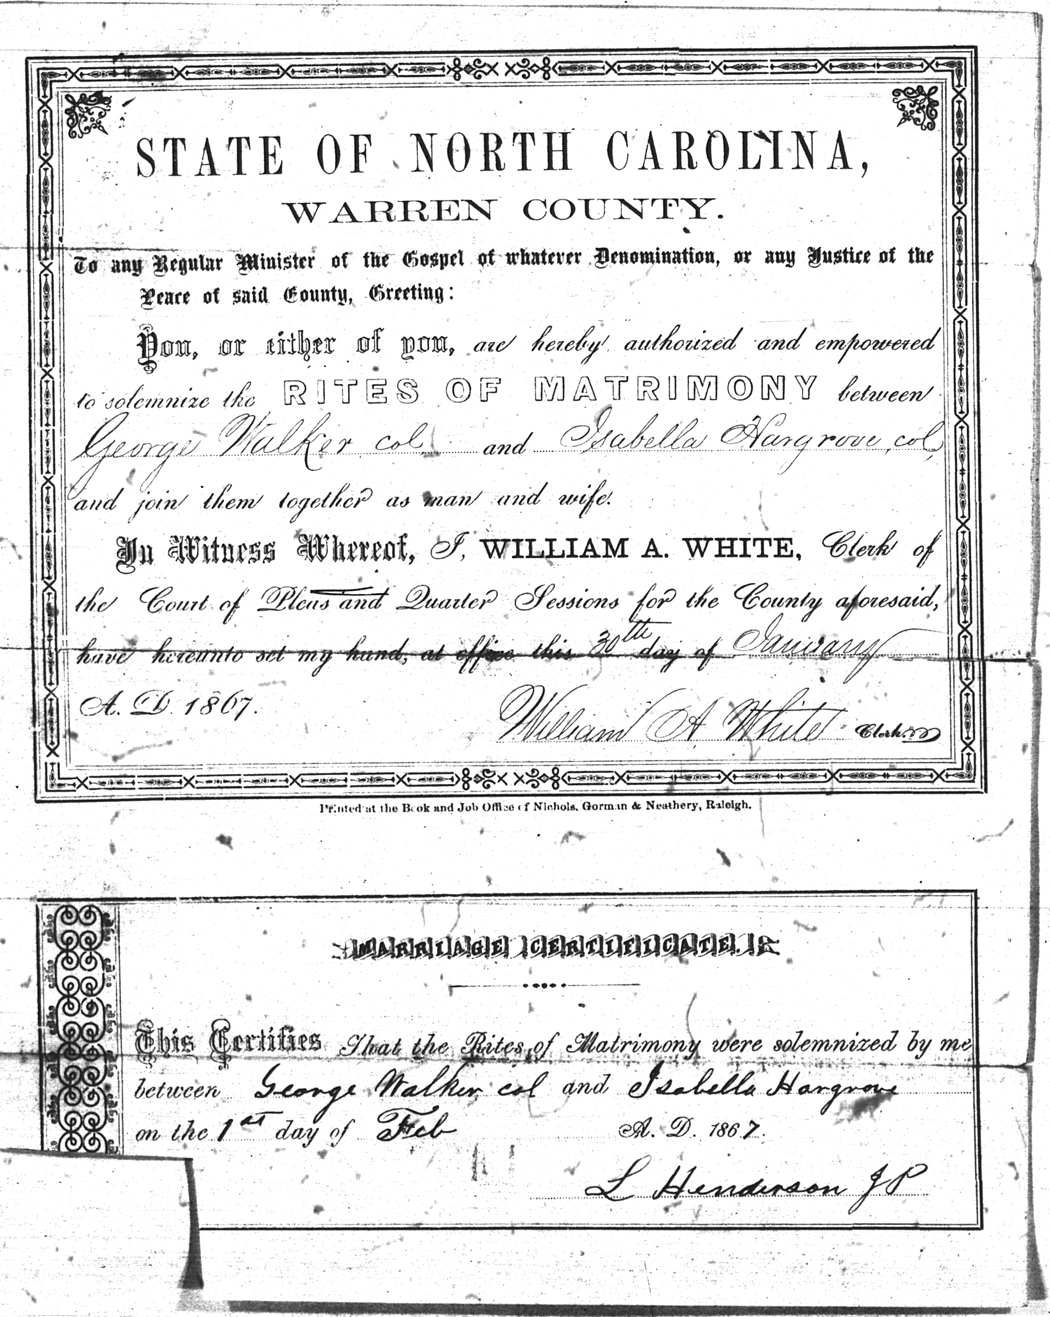 STATE OF NORTH CAROLINA,
WARREN COUNTY.
To any Regular Minister of the Gospel of whatever Denomination, or any Justice of the
Peace of said County, Greeting:
You, or either of you, are hereby authorized and empowered
to solemnize the RITES OF MATRIMONY between
George Walker col. and Isabella Hargrove, col,
and join them together as man and wife.
In Witness Whereof, I, WILLIAM A. WHITE, Clerk of
the Court of Pleas and Quarter Sessions for the County aforesaid,
have hereunto set my hand, at office this 30th day of January
A. D. 1867.
William A. White Clerk.
Printed at the Book and Job Office of Nichols, Gorman & Neathery, Raleigh.
MARRIAGE CERTIFICATE.
This Certifies That the Rites of Matrimony were solemnized by me
between George Walker col and Isabella Hargrove
on the 1st day of Feb A. D. 1867.
L Henderson JP